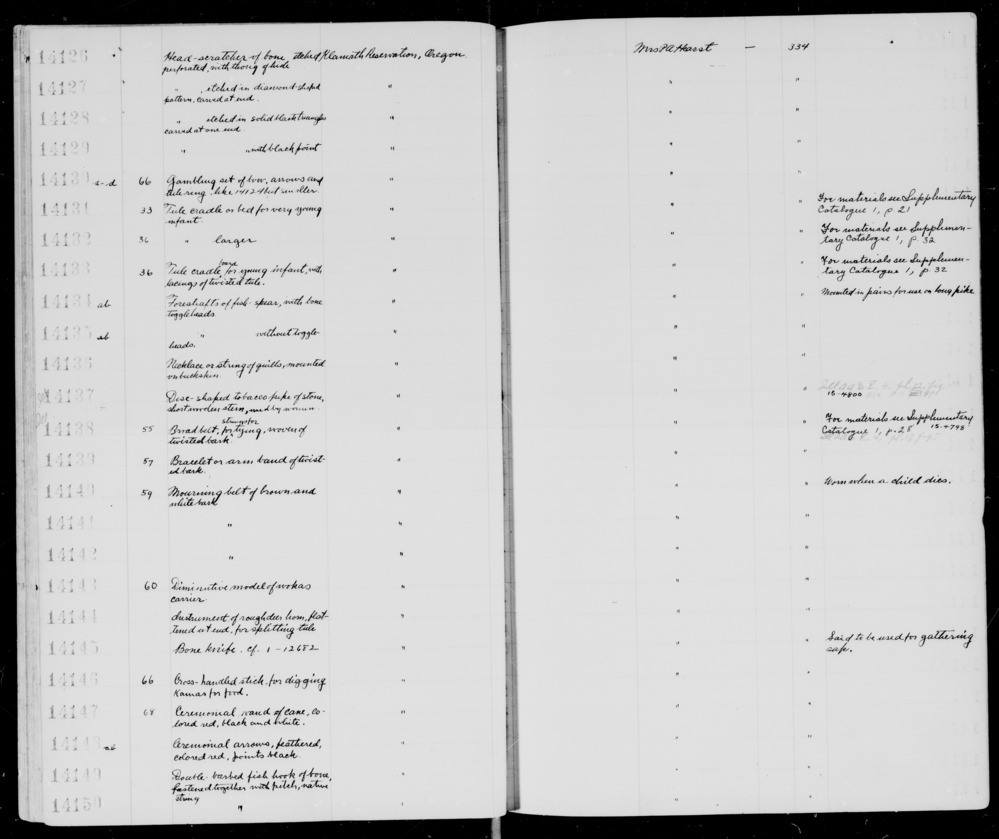 14126 Head-scratcher of bone etched Klamath Reservation, Oregon Mrs P A Hearst — 334
perforated, with thong of hide
14127 " , etched in diamond-shaped " " "
pattern, carved at end.
14128 " etched in solid black triangles " " "
carved at one end
14129 " " with black point " " "
14130 a-d 66 Gambling set of bow, arrows and " " "
tule ring, like 14124 but smaller.
14131 33 Tule cradle or bed for very young " " " For materials see Supplementary
infant. Catalogue 1, p 21
14132 36 " larger " " " For materials see Supplemen-
tary Catalogue 1, p. 32
14133 36 Tule cradle board for young infant, with " " " For materials see Supplemen-
lacings of twisted tule. tary Catalogue 1, p 32
14134 ab Foreshafts of fish-spear, with bone " " " Mounted in pairs for use on long pike
toggleheads
14135 ab " without toggle- " " "
heads.
14136 Necklace or string of quills, mounted " " "
on buckskin.
14137 Disc-shaped tobacco pipe of stone, " " " 15-4800
short wooden stem, used by women
14138 55 Broad belt, strings for tying, woven of " " " For materials see Supplementary
twisted bark Catalogue 1, p. 28 15-4798
14139 57 Bracelet or arm band of twist- " " "
ed bark.
14140 59 Mourning belt of brown and " " " Worn when a child dies.
white bark
14141 " " " "
14142 " " " "
14143 60 Diminutive model of wokas " " "
carrier.
14144 Instrument of rough deer horn, flat- " " "
tened at end, for splitting tule
14145 Bone knife. cf. 1-12682 " " " Said to be used for gathering
sap.
14146 66 Cross-handled stick, for digging " " "
Kamas for food.
14147 68 Ceremonial wand of cane, co- " " "
lored red, black and white.
14148 ab Ceremonial arrows, feathered, " " "
colored red, points black.
14149 Double-barbed fish hook of bone, " " "
fastened together with pitch, native
string
14150 " " " "